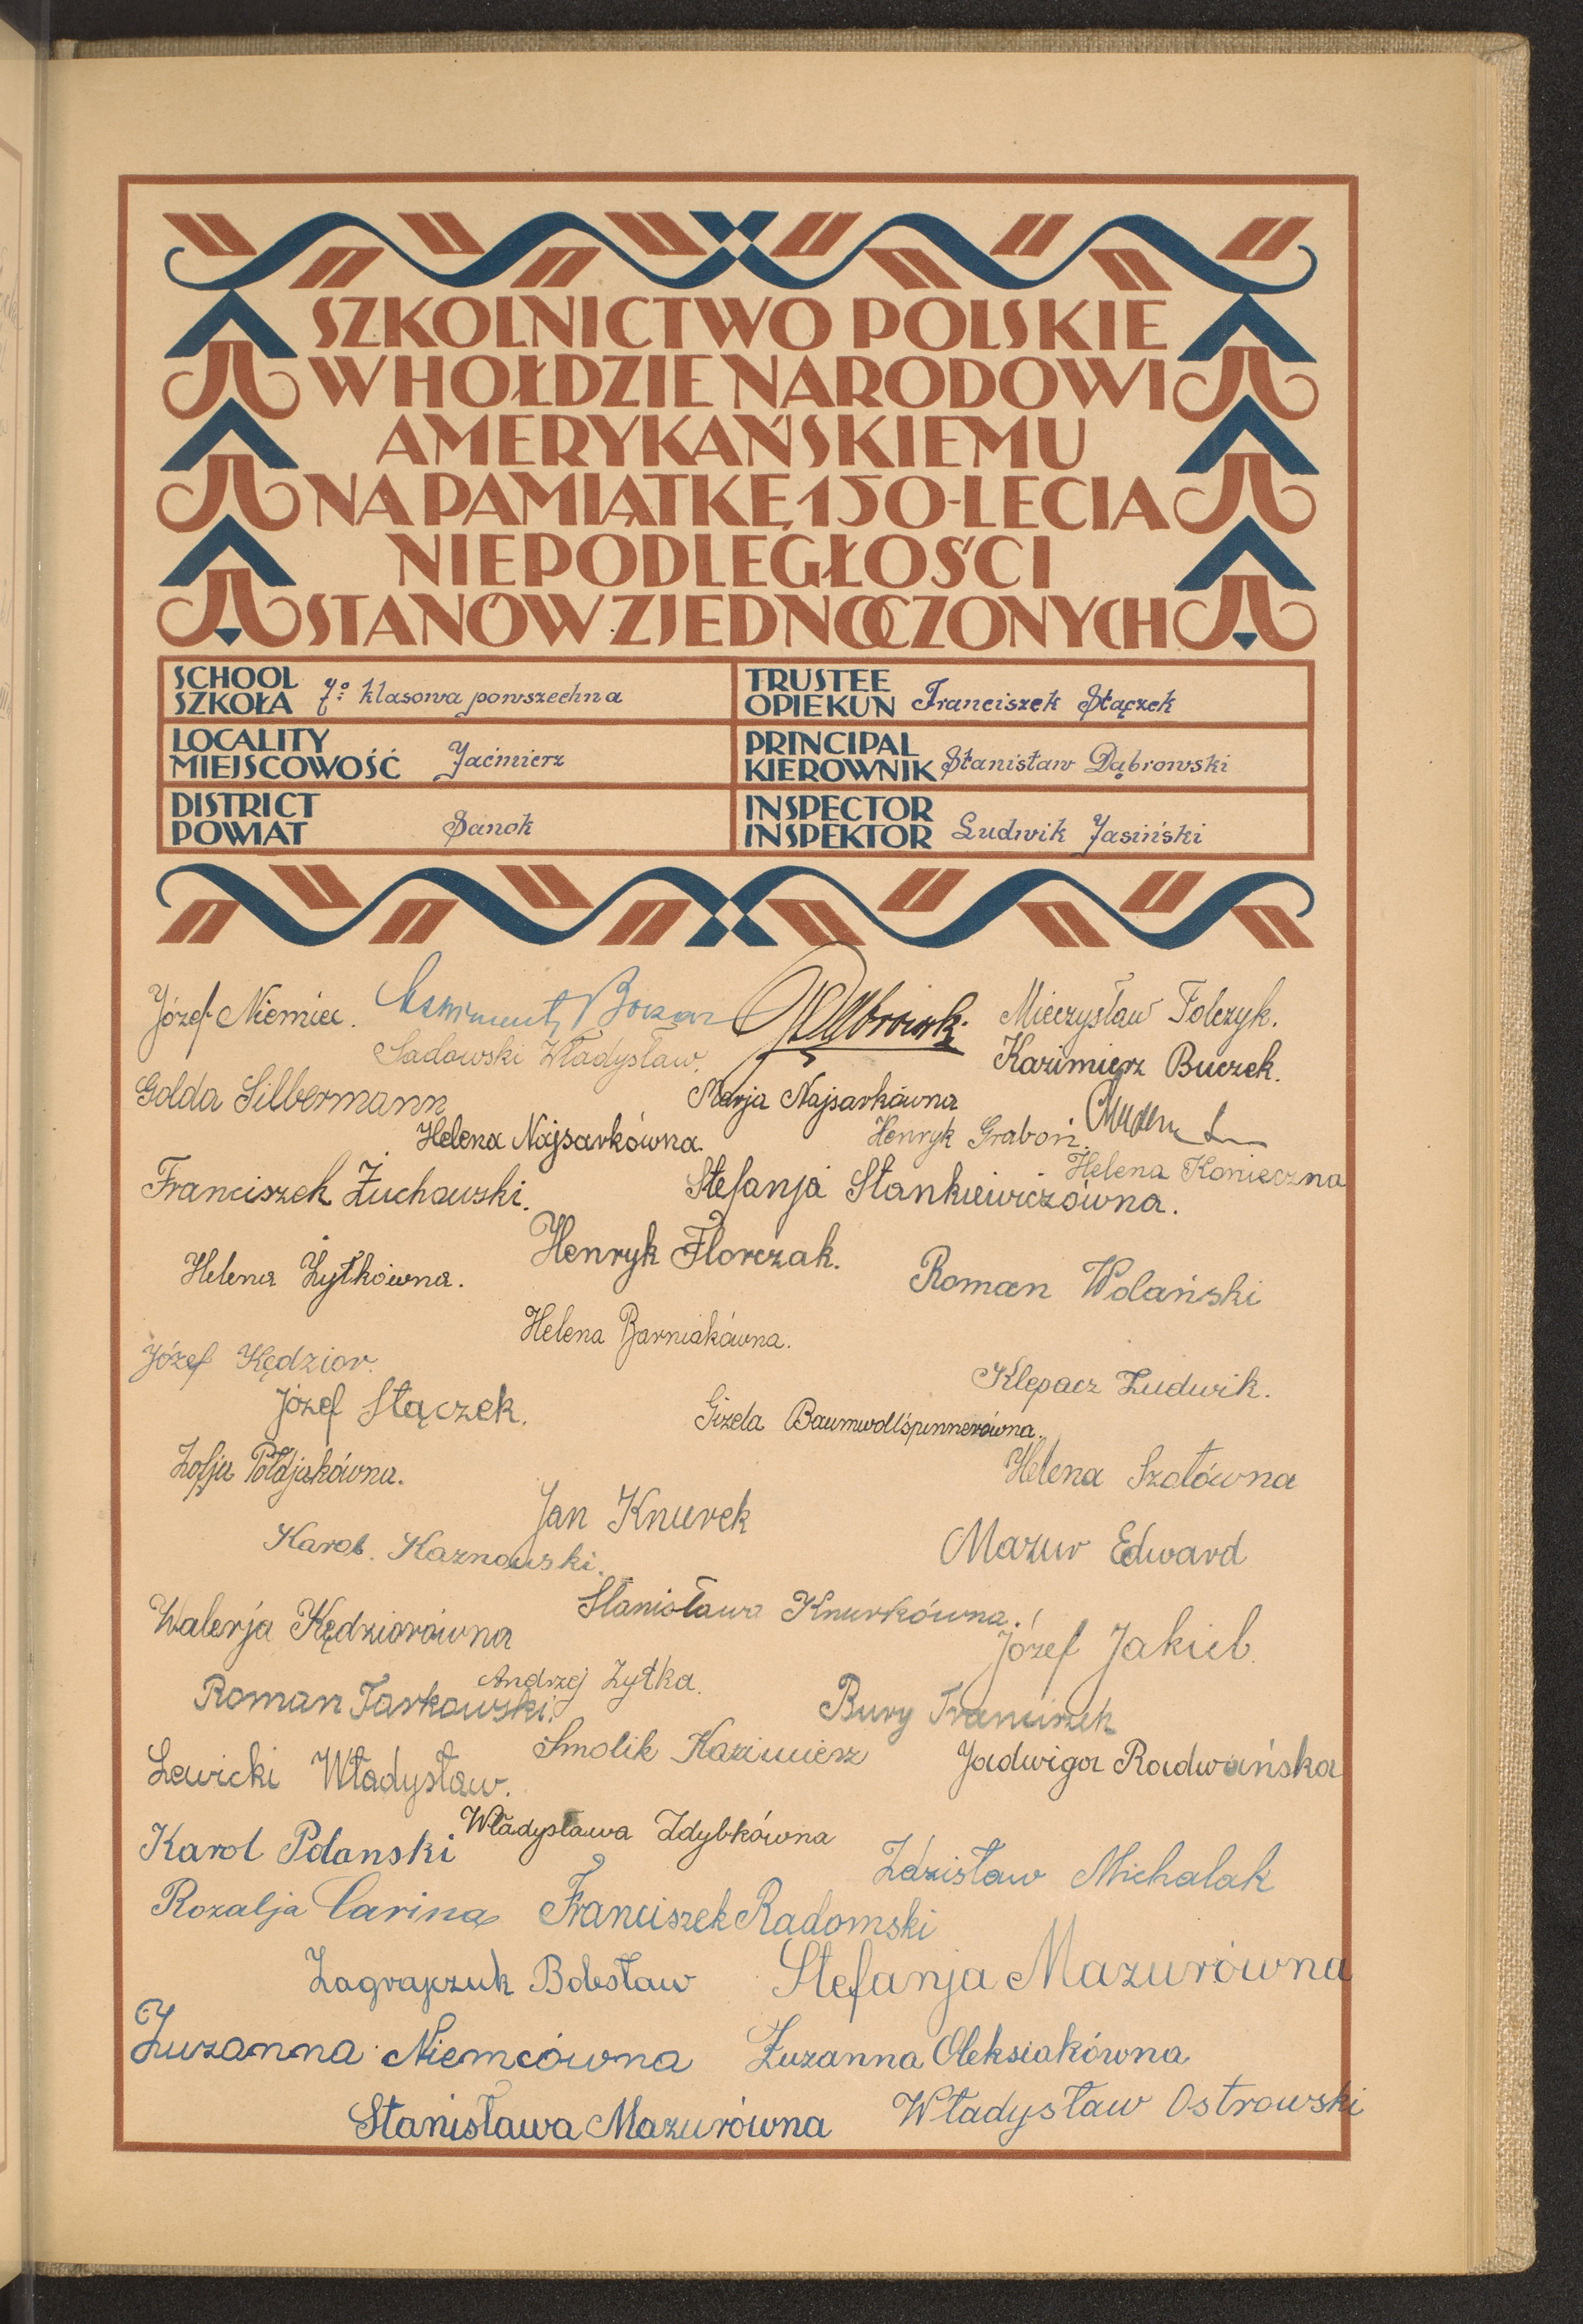 SZKOLNICTWO POLSKIE
W HOŁDZIE NARODOWI
AMERYKAŃSKIEMU
NA PAMIĄTKĘ 150-LECIA
NIEPODLEGŁOŚCI
STANÓW ZJEDNOCZONYCH
SCHOOL
SZKOŁA 7o klasowa powszechna
TRUSTEE
OPIEKUN Franciszek Stączek
LOCALITY
MIEJSCOWOŚĆ Jaćmierz
PRINCIPAL
KIEROWNIK Stanisław Dąbrowski
DISTRICT
POWIAT Sanok
INSPECTOR
INSPEKTOR Ludwik Jasiński
Józef Niemiec.
Mieczysław Folczyk.
Sadowski Władysław.
Kazimierz Buczek.
Golda Silbermann
Marja Najsarkówna
Helena Najsarkówna.
Henryk Graboń.
Helena Konieczna
Franciszek Żuchowski.
Stefanja Stankiewiczówna.
Henryk Florczak.
Helena Żytkówna.
Roman Wolański
Helena Barniakówna.
Józef Kędzior.
Klepacz Ludwik.
Józef Stączek.
Gizela Baumwollspinnerówna.
Zofja Półdjakówna.
Helena Szałówna
Jan Knurek
Karol. Kaznowski.
Mazur Edward
Stanisława Knurkówna.
Walerja Kędziorówna
Józef Jakiel.
Andrzej Żytka.
Roman Tarkowski.
Bury Franciszek
Smolik Kazimierz
Lewicki Władysław.
Jadwiga Radwańska
Władysława Zdybkówna
Karol Polanski
Zdzisław Michalak
Rozalja Carina
Franciszek Radomski
Zagrajczuk Bolesław
Stefanja Mazurówna
Zuzanna Niemcówna
Zuzanna Oleksiakówna
Stanisława Mazurówna
Władysław Ostrowski